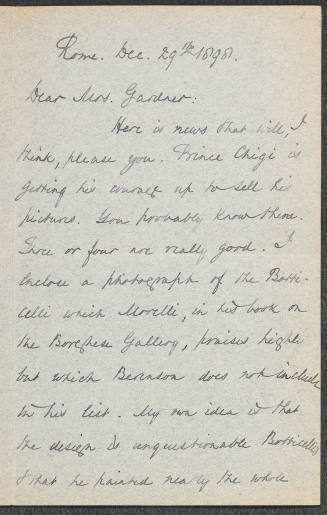 Rome. Dec. 29th 1898.
Dear Mrs. Gardner:
Here is news that will, I
think, please you. Prince Chigi is
getting his courage up to sell his
pictures. You probably know them.
Three or four are really good. I
enclose a photograph of the Botti-
celli which Morelli, in his book on
the Borghese Gallery, praises highly
but which Berenson does not include
in his list. My own idea is that
the design is unquestionable Botticelli's
& that he painted nearly the whole